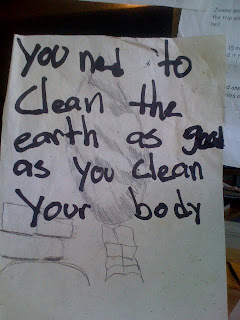 You ned to
Clean the
earth as good
as you clean
your body